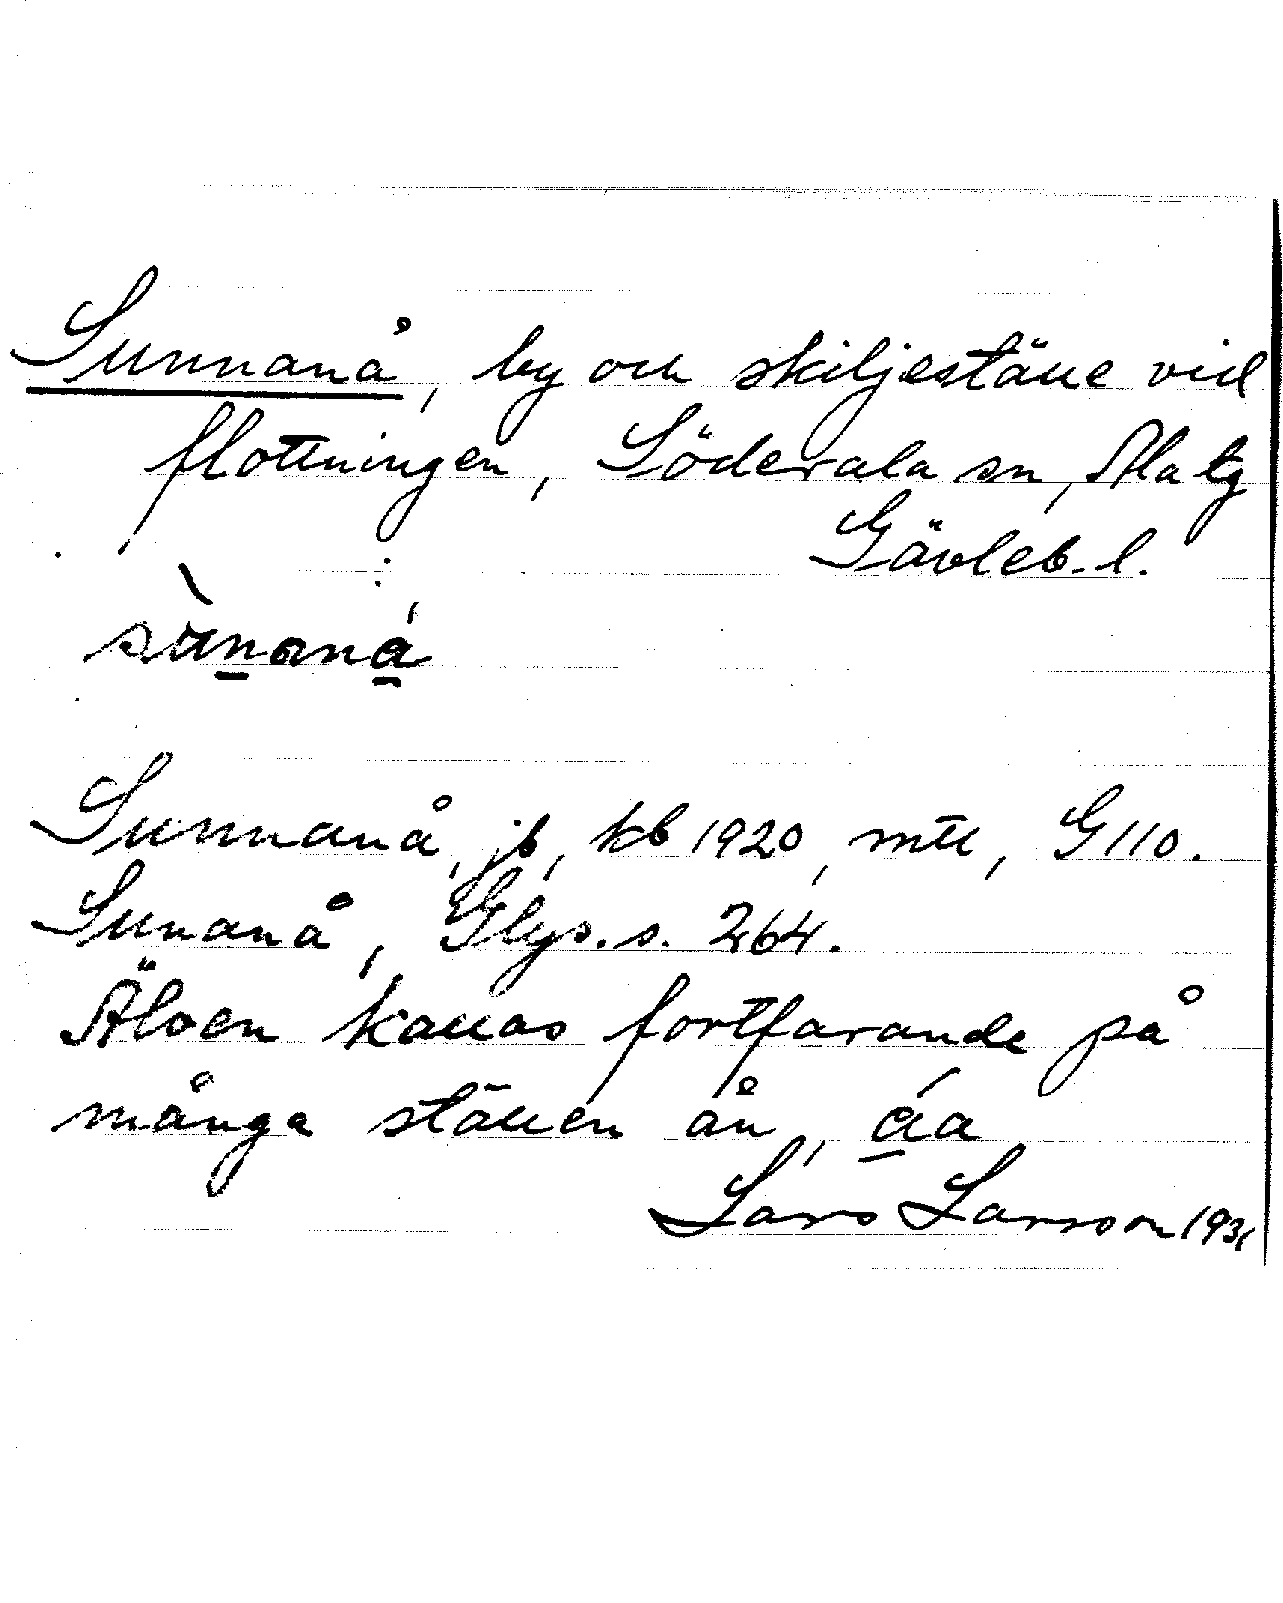 Sunnanå, by och skiljeställe vid
flottningen, Söderala sn, Ala tg
Gävleb. l.
Sunnanå, jb, kb 1920, mtl, G110.
Sunanå, Glys. s. 264.
Älven kallas fortfarande på
många ställen ån, áa
Lars Larsson 1931